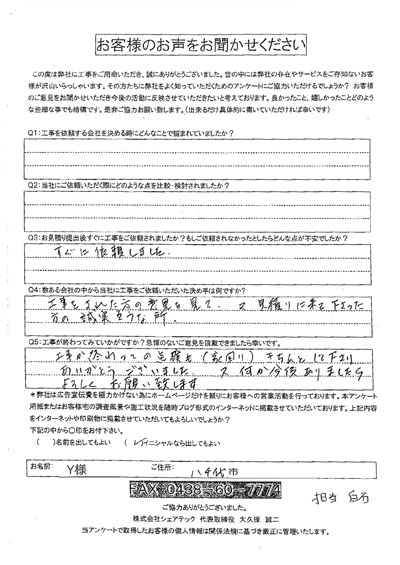 お客様のお声をお聞かせください
この度は弊社に工事をご用命いただき、誠にありがとうございました。世の中には弊社の存在やサービスをご存知ないお客
様が沢山いらっしゃいます。その方たちに弊社をよく知っていただくためのアンケートにご協力いただけるでしょうか? お客様
のご意見をお聞かせいただき今後の活動に反映させていただきたいと考えております。良かったこと、嬉しかったことどのよう
な些細な事でも結構です。是非ご協力お願い致します。(出来るだけ具体的に書いていただければ幸いです)
Q1:工事を依頼する会社を決める時にどんなことで悩まれていましたか?
Q2:当社にご依頼いただく際にどのような点を比較・検討されましたか?
Q3:お見積り提出後すぐに工事をご依頼されましたか?もしご依頼されなかったとしたらどんな点が不安でしたか?
すぐに依頼しました。
Q4:数ある会社の中から当社に工事をご依頼いただいた決め手は何ですか?
工事をされた方の意見を見て、又 見積りに来て下さった
方の誠実そうな所。
Q5:工事が終わってみていかがですか?忌憚のないご意見を頂戴できましたら幸いです。
工事が終わっての点検も(家周り)きちんとして下さり
ありがとうございました。 又 何か今後ありましたら
よろしくお願い致します
*弊社は広告宣伝費を極力かけない為にホームページだけを頼りにお客様への営業活動を行っております。本アンケート
用紙またはお客様宅の調査風景や施工状況を随時ブログ形式のインターネットに掲載させていただいております。上記内容
をインターネットや印刷物に掲載させていただいてもよろしいでしょうか?
下記の中から〇印をお付下さい。
( )名前を出してもよい (レ)イニシャルなら出してもよい
お名前: Y様 ご住所: 八千代市
FAX 0438-60-7774
担当 白石
ご協力ありがとうございました。
株式会社シェアテック 代表取締役 大久保 誠二
当アンケートで取得したお客様の個人情報は関係法規に基づき厳正に管理いたします。